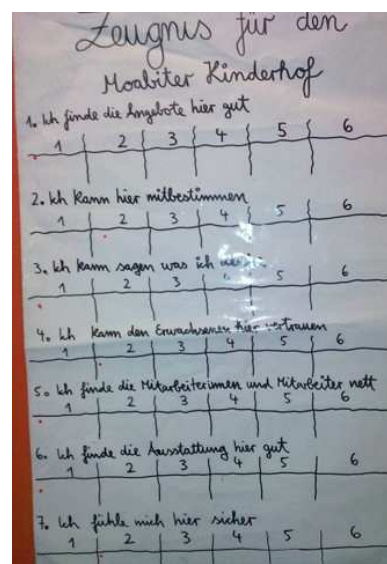 Zeugnis für den
Moabiter Kinderhof
1. Ich finde die Angebote hier gut
1 2 3 4 5 6
2. Ich kann hier mitbestimmen
1 2 3 4 5 6
3. Ich kann sagen was ich
1 2 3 5 6
4. Ich kann den Erwachsenen hier vertrauen
1 2 3 4 5 6
5. Ich finde die Mitarbeiterinnen und Mitarbeiter nett
1 2 3 4 5 6
6. Ich finde die Ausstattung hier gut
1 2 3 4 5 6
7. Ich fühle mich hier sicher
1 2 3 4 5 6